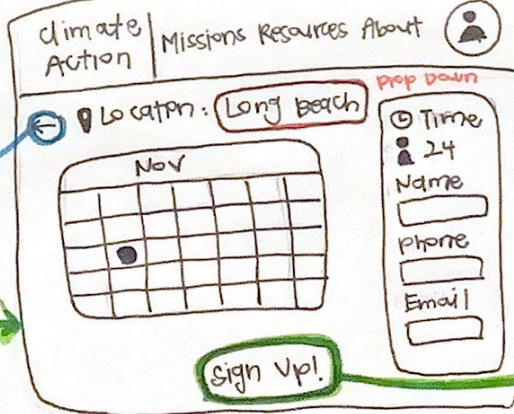 Climate Action
Missions Resources About
Drop Down
Location: Long Beach
Nov
Time
24
Name
Phone
Email
Sign Up!